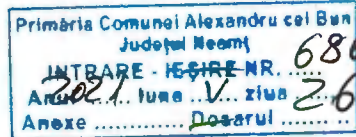 Primăria Comunei Alexandru cel Bun
Județul Neamț
INTRARE - IEȘIRE NR. 686
Anul 2021 luna V ziua 26
Anexe ............ Dosarul .........